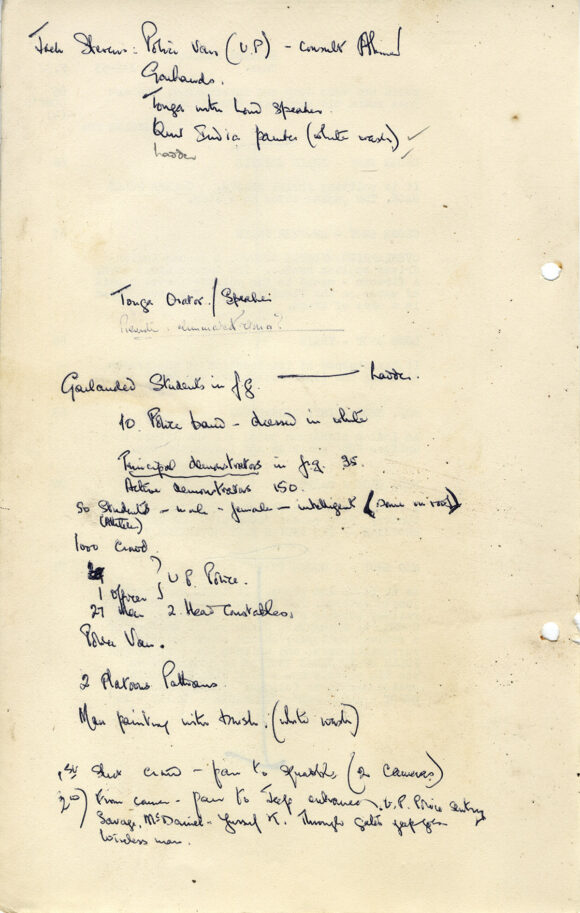 Police Van (U.P) - consult Ahmed
Garlands.
Tonga with Loud Speaker.
Quit India painter (white wash) ✓
Ladder ✓
Tonga Orator / Speaker
Garlanded Students in f.g. ——— Ladder.
10. Police band - dressed in white
Principal demonstrators in f.g. 35.
Active demonstrators 150.
50 Students - male - female - intelligent (some on roof)
1000 crowd.
U.P. Police.
1 Officer
27 Men 2 Head Constables,
Police Van.
2 Platoons Pathans
Man painting with brush. (white wash)
1st Shot crowd - pan to (2 cameras)
2nd) From corner - pan to Jeep entrance, U.P. Police Sentry
Savage, McDaniel - Yussuf K. Through gates
Wireless man.